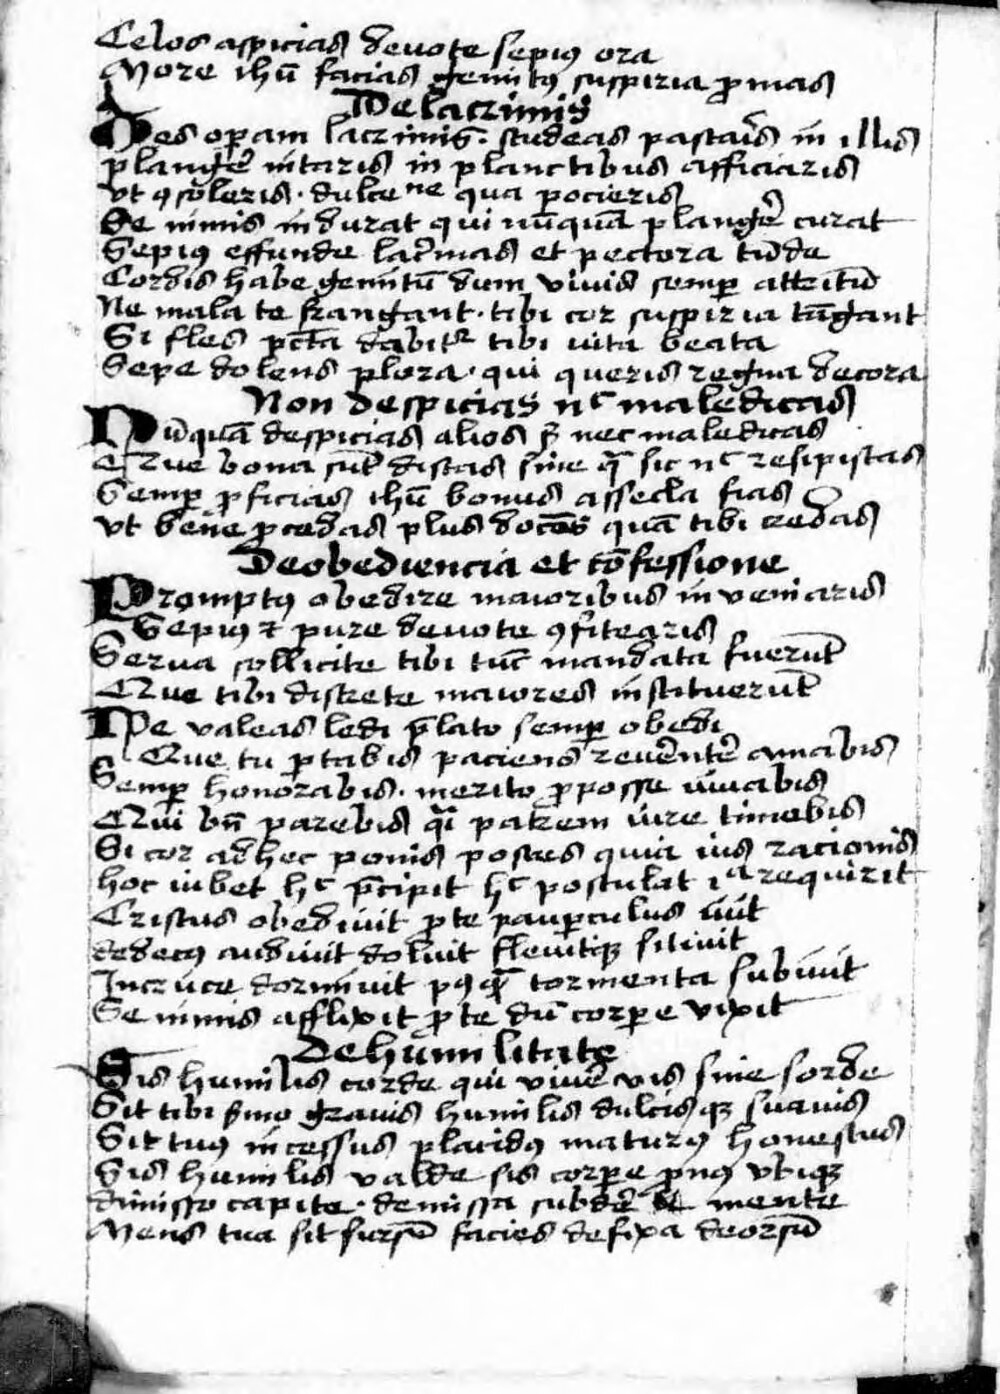 Celos aspicias deuote sepiꝰ ora
More ihū facias gemitꝰ suspiria ꝓmas
De lacrimis
Des oꝑam lacrimis. studeas pascaris in illis
plangere nitaris in planctibus afficiaris
vt ꝯsoleris · dulcene qua pocieris
Se nimis indurat qui nūquā plangē curat
Sepiꝰ effunde lac̄mas et pectora tūde
Cordis habe gemitū dum viuis semꝑ attritū
Ne mala te frangant · tibi cor suspiria tāgant
Si fles pctā dabitᷣ tibi uita beata
Sepe dolens plora · qui queris regna decora
Non despicias nᶜ maledicas
Nūquā despicias alios nec maledicas
Que bona sūt discas sine qͣ sic nᶜ resipiscas
Semꝑ ꝓficias ihū bonus assecla fias
vt bene ꝓcedas plus docēs quā tibi credas
De obediencia et cōfessione
Promptꝰ obedire maioribus inueniaris
Sepiꝰ ⁊ pure deuote ꝯfitearis
Serua sollicite tibi tūc mandata fuerūt
Que tibi discrete maiores instituerūt
Ne valeas ledi p̄lato semꝑ obedi
Que tu portabis paciens reuerentē amabis
Semꝑ honorabis · merito ꝓ posse iuuabis
Qui bn̄ parebis qͣi patrem iure timebis
Si cor adhec ponis posces quia ius racionis
hoc iubet hᶜ p̄cipit hᶜ postulat iᵃ requirit
Cristus obediuit ꝓ te pauꝑculus iuit
dedecꝰ audiuit doluit fleuitqꝫ sitiuit
In cruce dormiuit pꝰqͣ tormenta subiuit
Se nimis afflixit ꝓ te dū corpore vixit
De humilitate
Sis humilis corde qui viuē vis sine sorde
Sit tibi s̄mo grauis humilis dulcisqꝫ suauis
Sit tuꝰ incessus placidꝰ maturꝰ honestus
Sis humilis valde sis corpore ꝓnꝰ vbiqꝫ
dimisso capite · demissa subdē mente
Mens tua sit sursū facies defixa deorsū